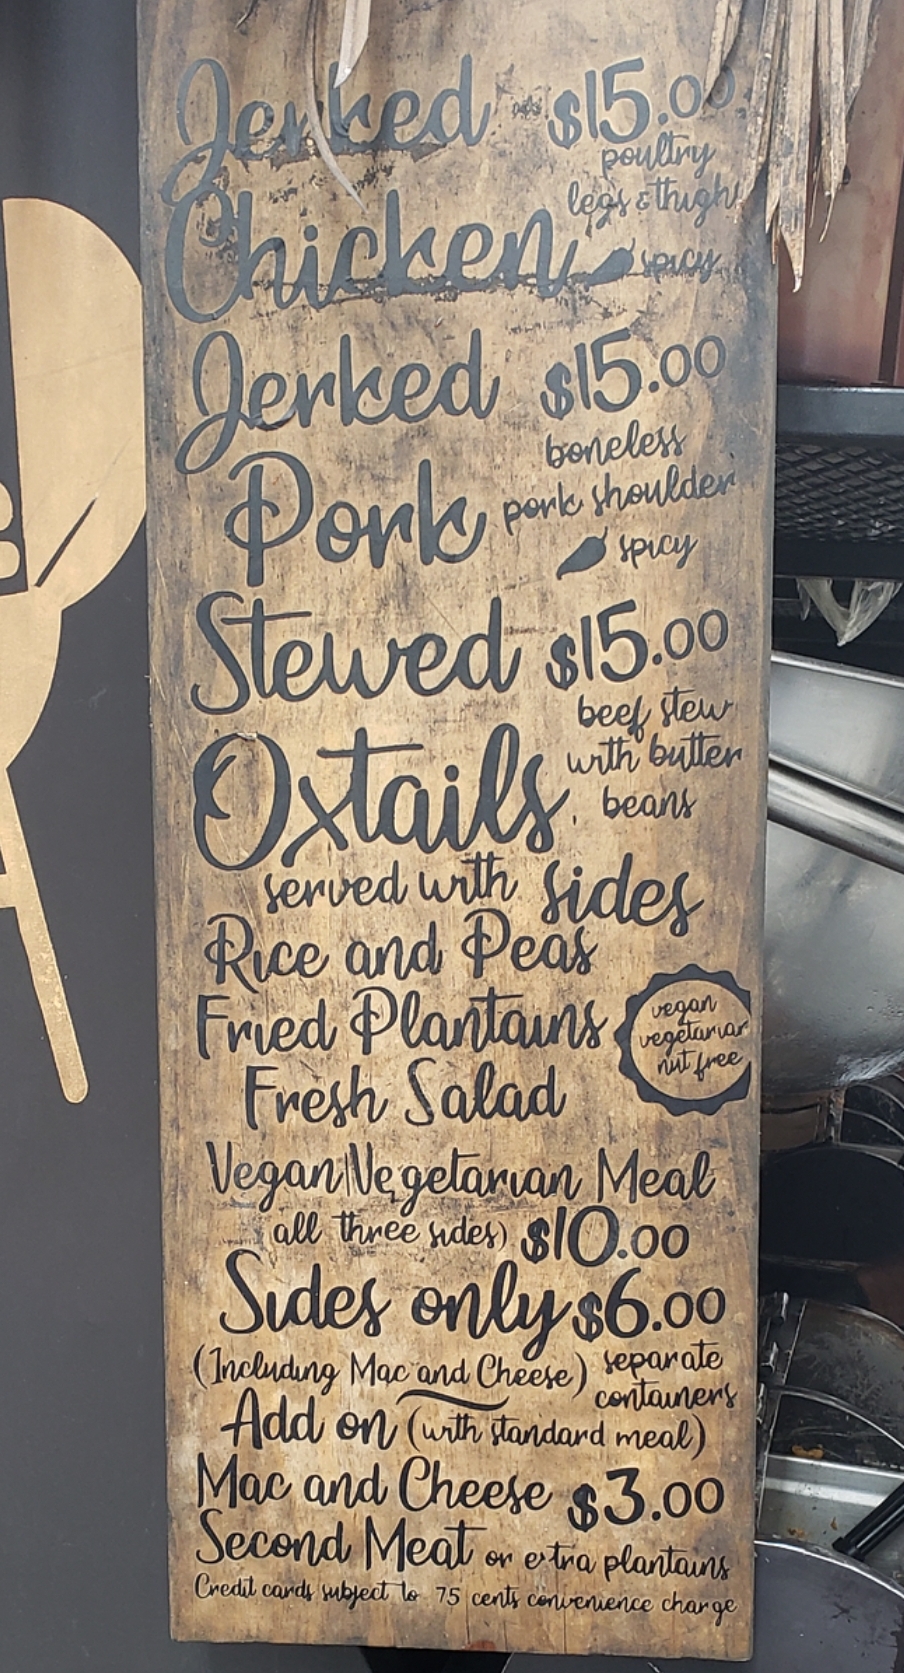 Jerked $15.00
poultry
legs & thighs
Chicken spicy
Jerked $15.00
boneless
Pork pork shoulder
spicy
Stewed $15.00
beef stew
Oxtails with butter
beans
served with sides
Rice and Peas
Fried Plantains
vegan
vegetarian
nut free
Fresh Salad
Vegan|Vegetarian Meal
all three sides) $10.00
Sides only $6.00
(Including Mac and Cheese) separate
containers
Add on (with standard meal)
Mac and Cheese $3.00
Second Meat or extra plantains
Credit cards subject to 75 cents convenience charge